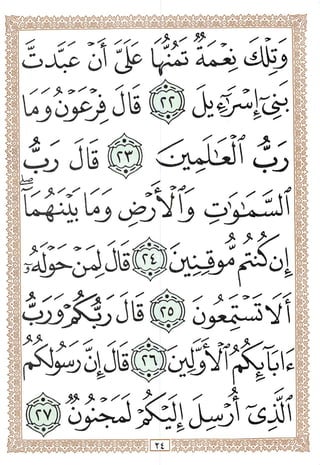 وَتِلْكَ نِعْمَةٌ تَمُنُّهَا عَلَىَّ أَنْ عَبَّدتَّ
بَنِىٓ إِسْرَٰٓءِيلَ ٢٢ قَالَ فِرْعَوْنُ وَمَا
رَبُّ ٱلْعَٰلَمِينَ ٢٣ قَالَ رَبُّ
ٱلسَّمَٰوَٰتِ وَٱلْأَرْضِ وَمَا بَيْنَهُمَآ ۖ
إِن كُنتُم مُّوقِنِينَ ٢٤ قَالَ لِمَنْ حَوْلَهُۥٓ
أَلَا تَسْتَمِعُونَ ٢٥ قَالَ رَبُّكُمْ وَرَبُّ
ءَابَآئِكُمُ ٱلْأَوَّلِينَ ٢٦ قَالَ إِنَّ رَسُولَكُمُ
ٱلَّذِىٓ أُرْسِلَ إِلَيْكُمْ لَمَجْنُونٌ ٢٧
٢٤